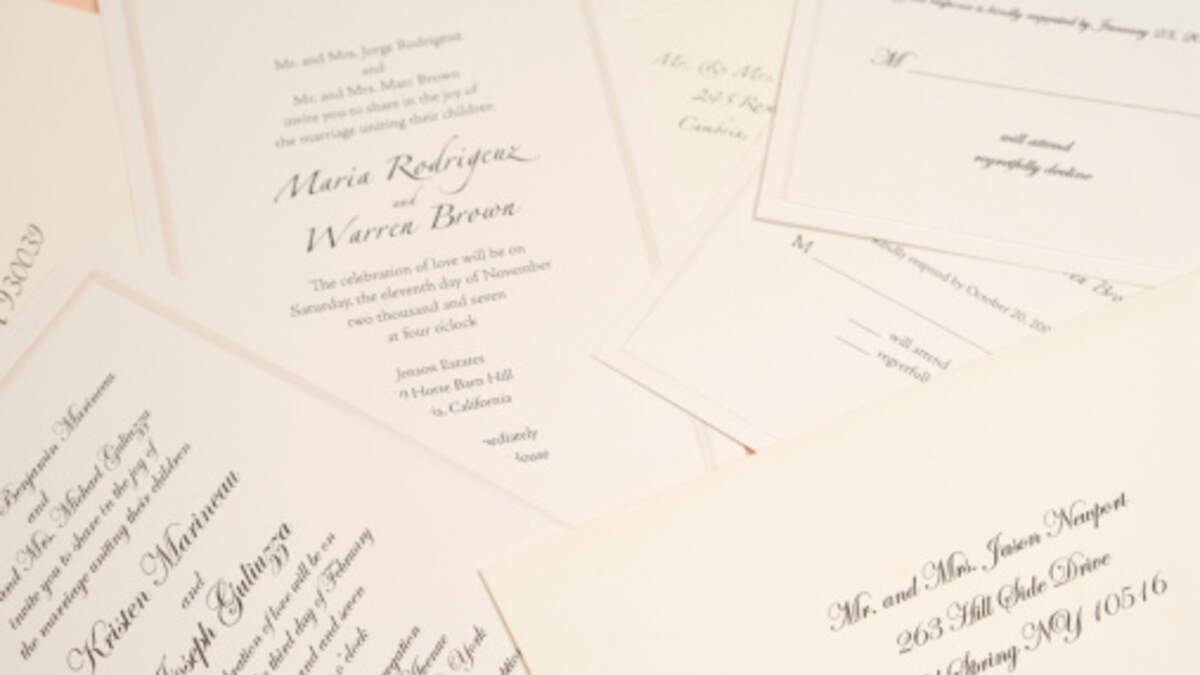 Mr. and Mrs. Jorge Rodrigenz
and
Mr. and Mrs. Marc Brown
invite you to share in the joy of
the marriage uniting their children
Maria Rodrigenz
and
Warren Brown
The celebration of love will be on
Saturday, the eleventh day of November
two thousand and seven
at four o'clock
Jenson Estates
Horse Barn Hill
California
Mr. & Mrs.
245
Cambria,
is kindly requested by January 23,
M
will attend
regretfully decline
M
respond by October 20,
will attend
930039
Benjamin Marineau
and
and Mrs. Michael Guliuzza
invite you to share in the joy of
the marriage uniting their children
Kristen Marineau
and
Joseph Guliuzza
of love will be on
third day of February
and seven
York
Mr. and Mrs. Jason Newport
263 Hill Side Drive
Spring NY 10516